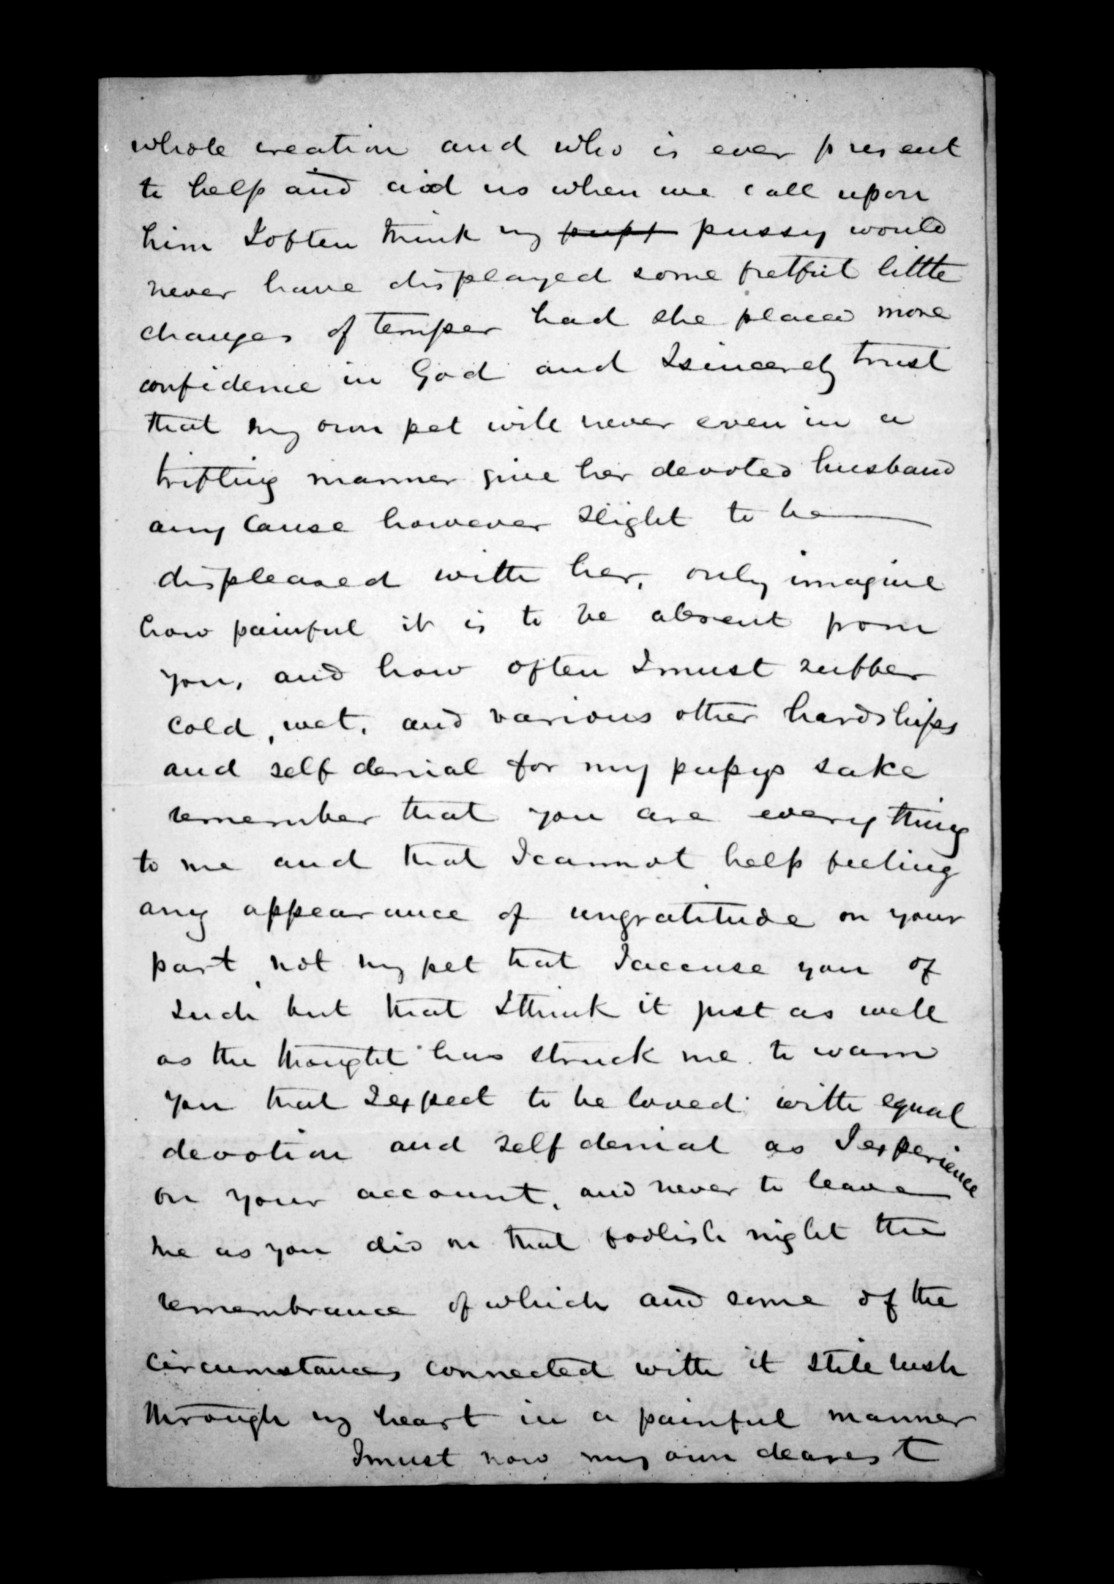 whole creation and who is ever present
to help and aid us when we call upon
him I often think my pupp pussy would
never have displayed some fretful little
changes of temper had she placed more
confidence in God and I sincerely trust
that my own pet will never even in a
trifling manner give her devoted husband
any cause however slight to be
displeased with her, only imagine
how painful it is to be absent from
you, and how often I must suffer
cold, wet, and various other hardships
and self denial for my pupys sake
remember that you are everything
to me and that I cannot help feeling
any appearance of ungratitude on your
part, not my pet that I accuse you of
such but that I think it just as well
as the thought has struck me to warn
you that I expect to be loved with equal
devotion and self denial as I experience
on your account, and never to leave
me as you did on that foolish night the
remembrance of which and some of the
circumstances connected with it still rush
through my heart in a painful manner
I must now my own dearest